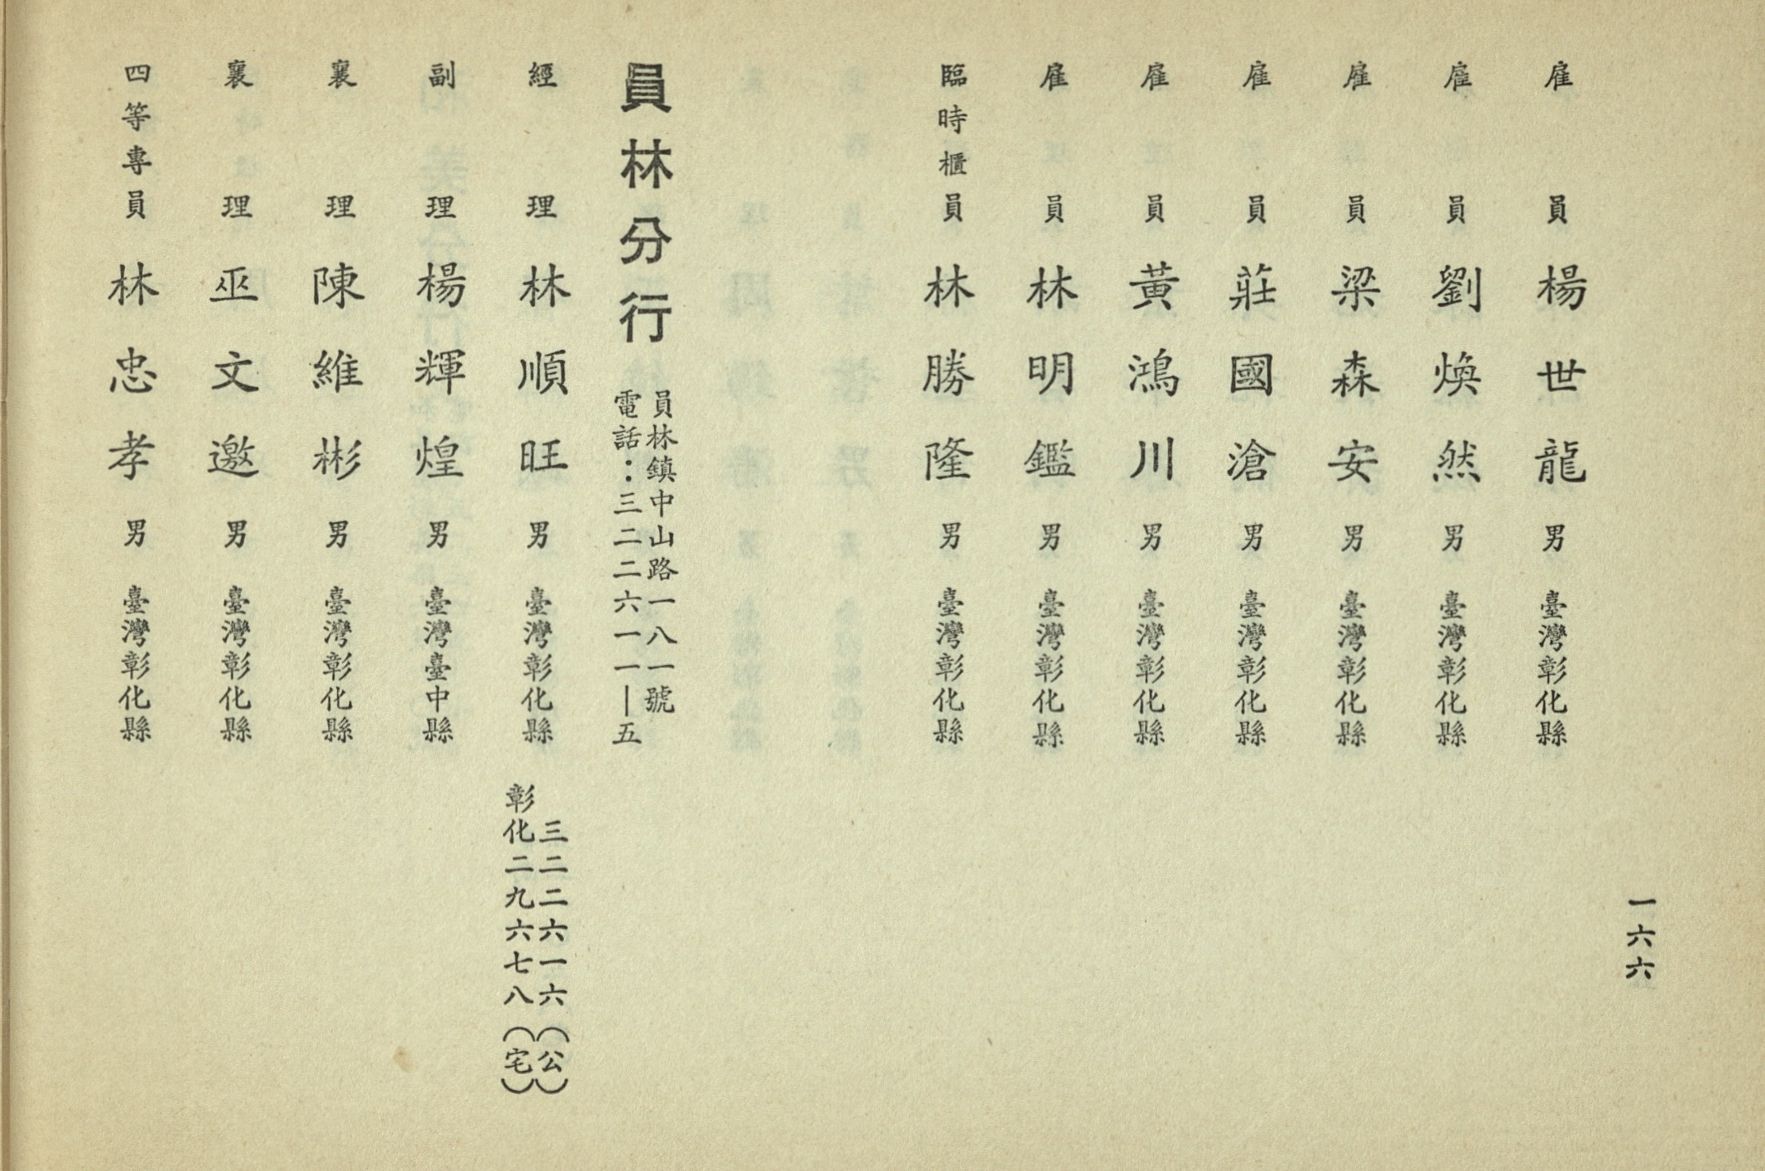 一六六
雇員 楊世龍 男 臺灣彰化縣
雇員 劉煥然 男 臺灣彰化縣
雇員 梁森安 男 臺灣彰化縣
雇員 莊國滄 男 臺灣彰化縣
雇員 黃鴻川 男 臺灣彰化縣
雇員 林明鑑 男 臺灣彰化縣
臨時櫃員 林勝隆 男 臺灣彰化縣
員林分行
員林鎮中山路一八一號
電話：三二二六一一｜五
經理 林順旺 男 臺灣彰化縣
三二二六一六（公）
彰化二九六七八（宅）
副理 楊輝煌 男 臺灣臺中縣
襄理 陳維彬 男 臺灣彰化縣
襄理 巫文邀 男 臺灣彰化縣
四等專員 林忠孝 男 臺灣彰化縣